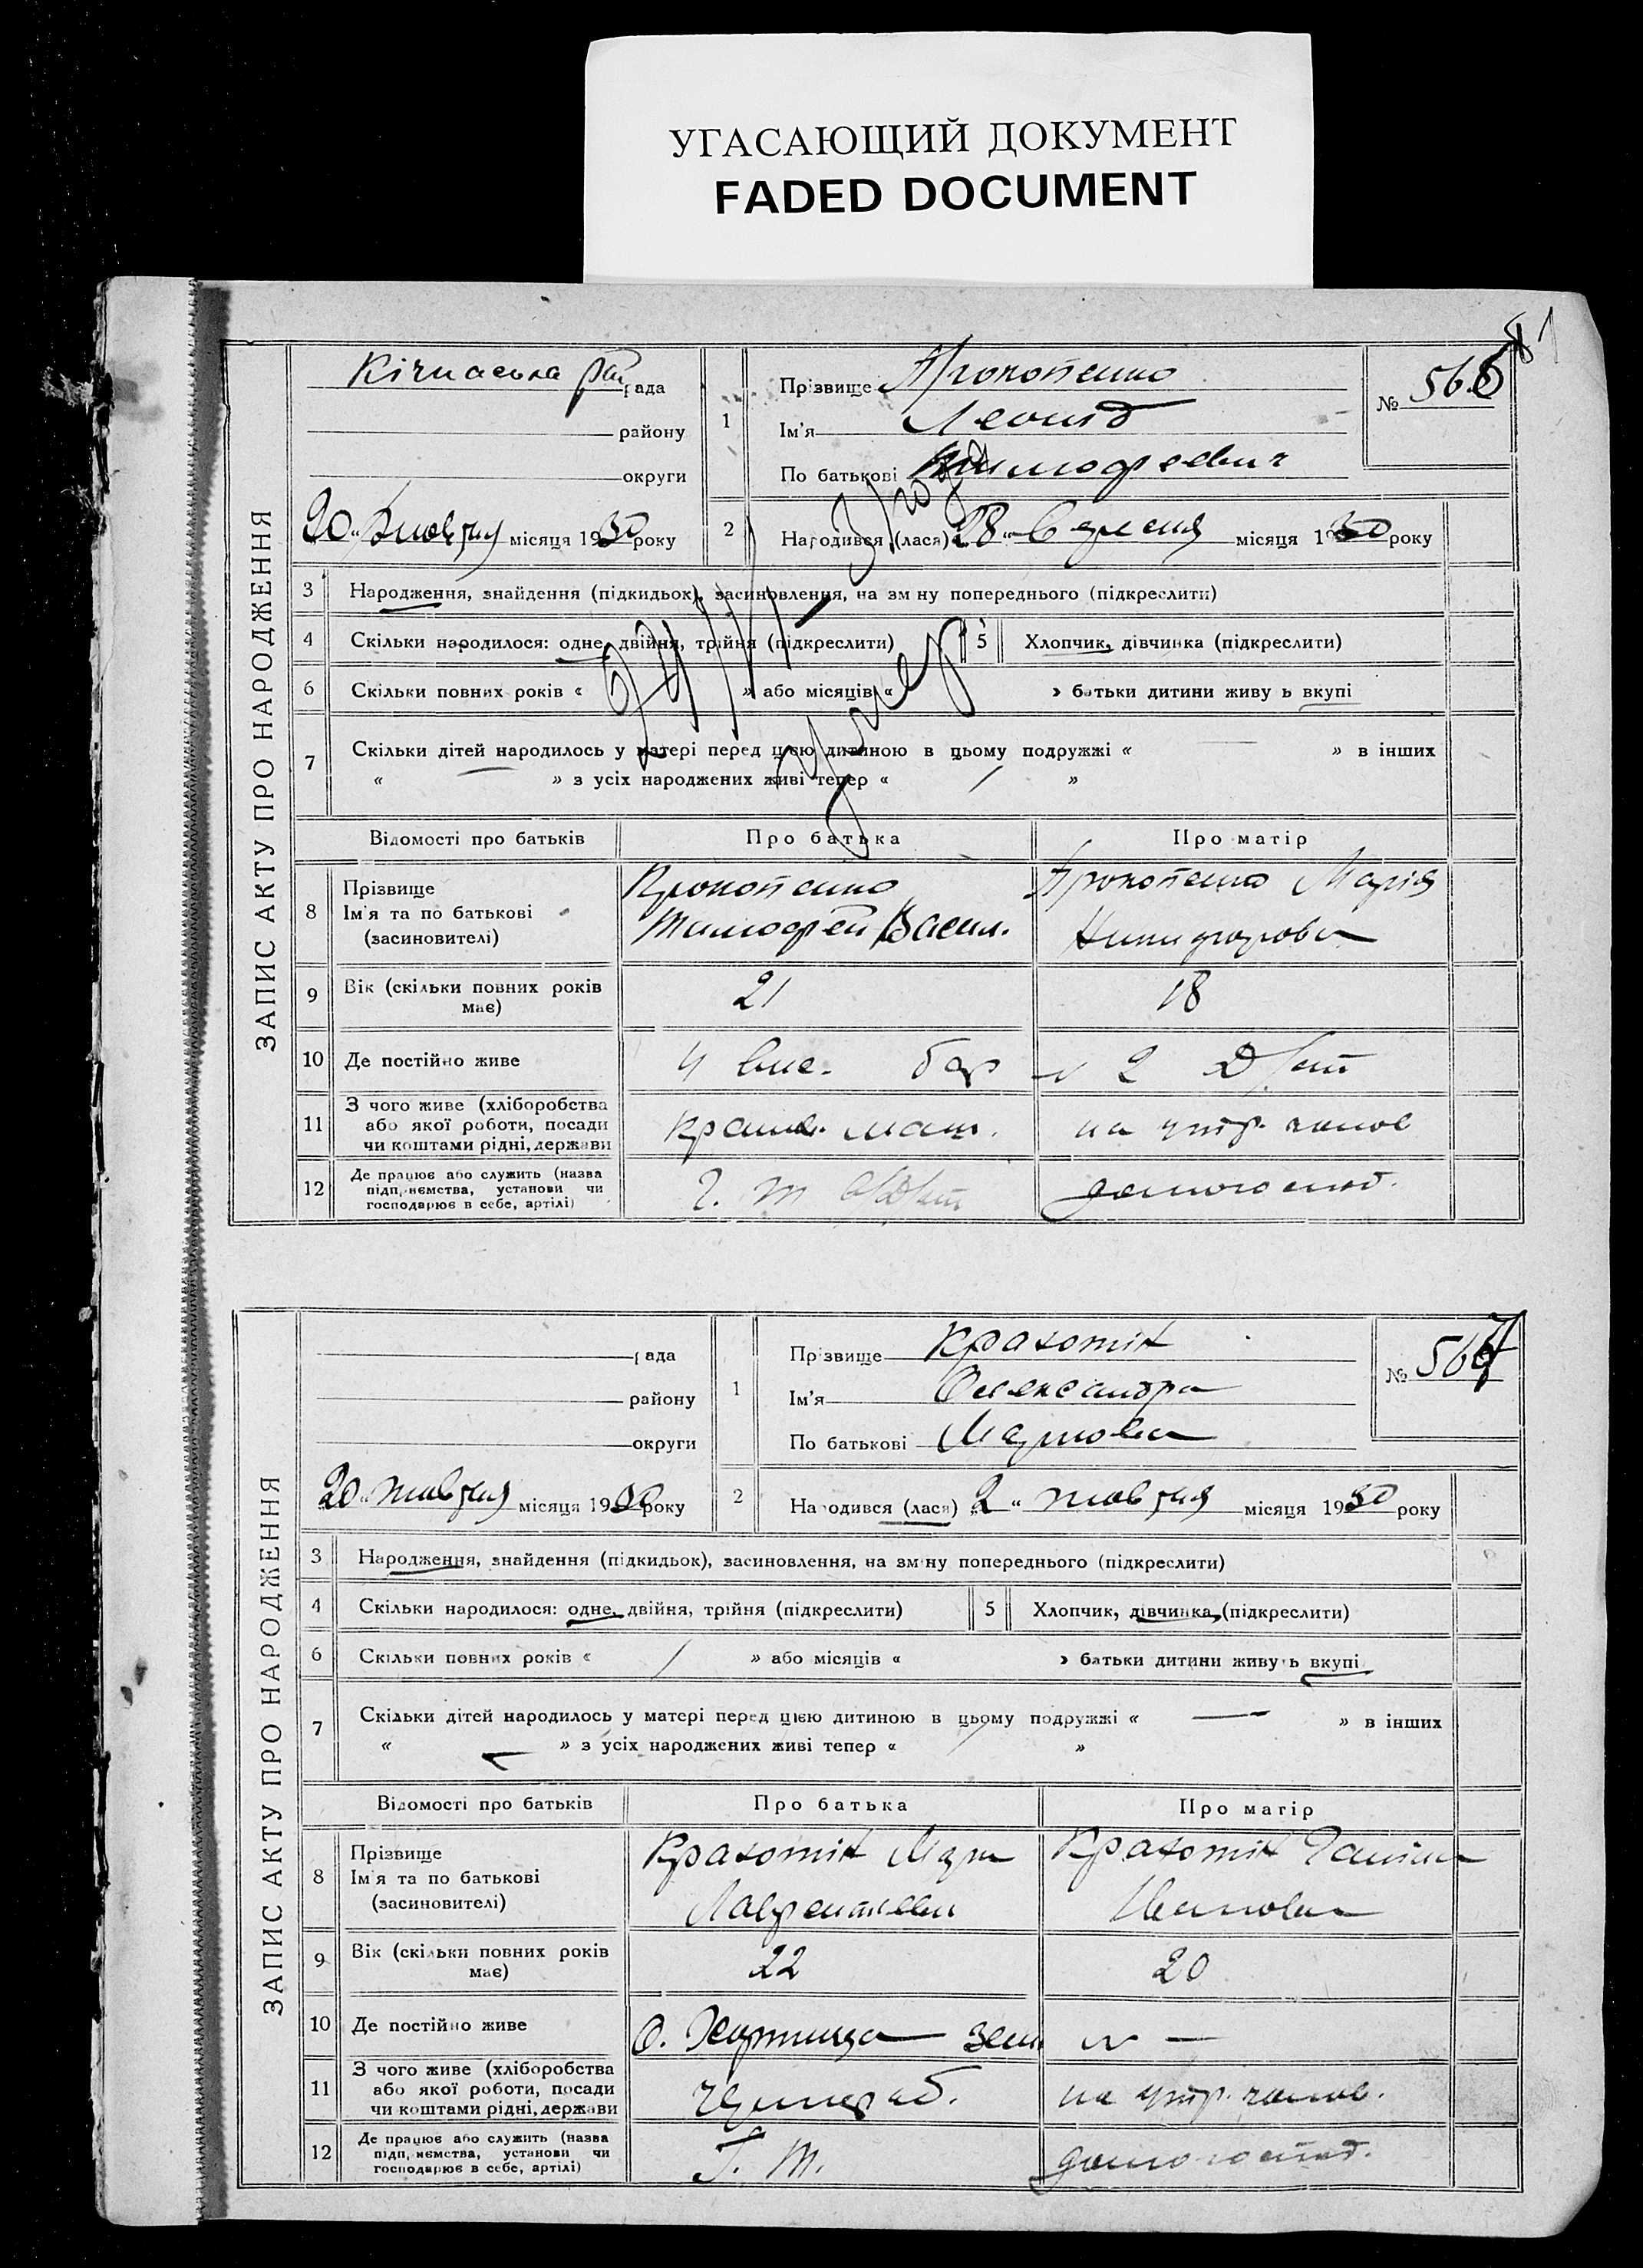 УГАСАЮЩИЙ ДОКУМЕНТ
FADED DOCUMENT
81
ЗАПИС АКТУ ПРО НАРОДЖЕННЯ
Кічкаська рада
району
округи
20 Жовтня місяця 1930 року
1 Прізвище Прокопенко
Ім'я Леонід
По батькові Тимофеевич
№ 566
2 Народився (лася) 28 Вересня місяця 1930 року
3 Народження, знайдення (підкидьок), засиновлення, на зміну попереднього (підкреслити)
4 Скільки народилося: одне, двійня, трійня (підкреслити) 5 Хлопчик, дівчинка (підкреслити)
6 Скільки повних років « » або місяців « » батьки дитини живуть вкупі
7 Скільки дітей народилось у матері перед цією дитиною в цьому подружжі « — » в інших
« — » з усіх народжених живі тепер « / »
умер
Відомості про батьків Про батька Про матір
8 Прізвище Ім'я та по батькові (засиновителі)
Прокопенко Тимофей Васил.
Прокопенко Марія Никифорова
9 Вік (скільки повних років має) 21 18
10 Де постійно живе 4 бар 2
11 З чого живе (хліборобства або якої роботи, посади чи коштами рідні, держави
маш. на утр. чолов
12 Де працює або служить (назва підприємства, установи чи господарює в себе, артілі)
домогоспод.
ЗАПИС АКТУ ПРО НАРОДЖЕННЯ
рада
району
округи
20 жовтня місяця 1930 року
1 Прізвище Крахотін
Ім'я Олександра
По батькові Маркова
№ 567
2 Народився (лася) 2 жовтня місяця 1930 року
3 Народження, знайдення (підкидьок), засиновлення, на зміну попереднього (підкреслити)
4 Скільки народилося: одне, двійня, трійня (підкреслити) 5 Хлопчик, дівчинка (підкреслити)
6 Скільки повних років « / » або місяців « » батьки дитини живуть вкупі
7 Скільки дітей народилось у матері перед цією дитиною в цьому подружжі « — » в інших
« — » з усіх народжених живі тепер « »
Відомості про батьків Про батька Про матір
8 Прізвище Ім'я та по батькові (засиновителі)
Крахотін Марк
Крахотін Іванова
9 Вік (скільки повних років має) 22 20
10 Де постійно живе О. Хортица —
11 З чого живе (хліборобства або якої роботи, посади чи коштами рідні, держави
чорнораб. на утр. чолов.
12 Де працює або служить (назва підприємства, установи чи господарює в себе, артілі)
Г. Т. домогоспод.